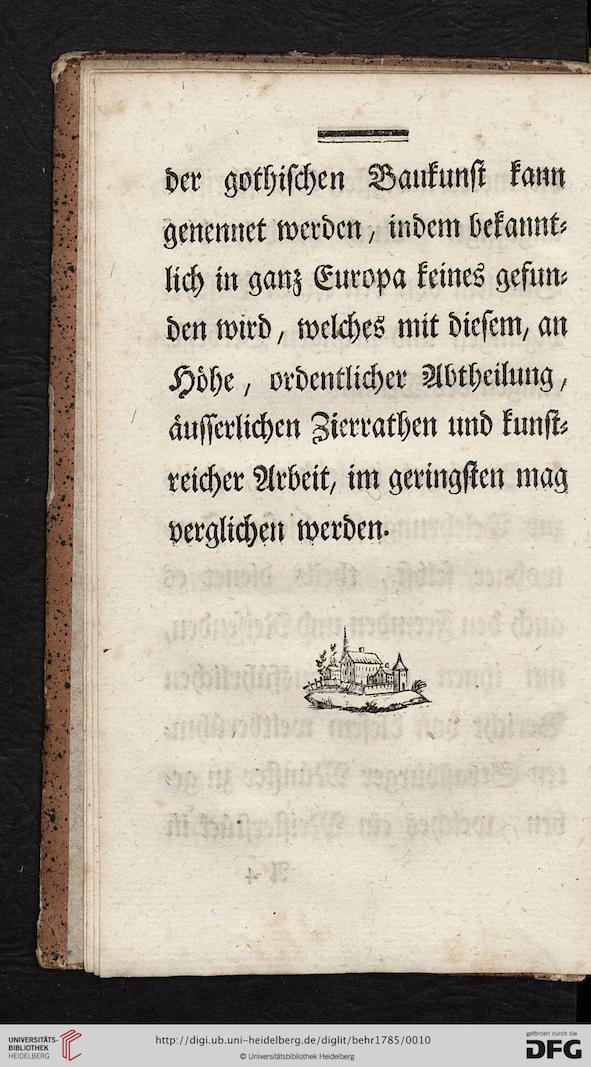 der gothischen Baukunst kann
genennet werden, indem bekannt⸗
lich in ganz Europa keines gefun⸗
den wird, welches mit diesem, an
Höhe, ordentlicher Abtheilung,
äusserlichen Zierrathen und kunst⸗
reicher Arbeit, im geringsten mag
verglichen werden.
UNIVERSITÄTS-
BIBLIOTHEK
HEIDELBERG
http://digi.ub.uni-heidelberg.de/diglit/behr1785/0010
© Universitätsbibliothek Heidelberg
gefördert durch die
DFG